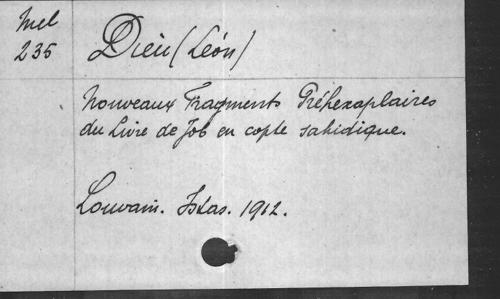 Mel
235
Dieu (Léon)
Nouveaux Fragments Préhexaplaires
du Livre de Job en copte sahidique.
Louvain. Istas. 1912.